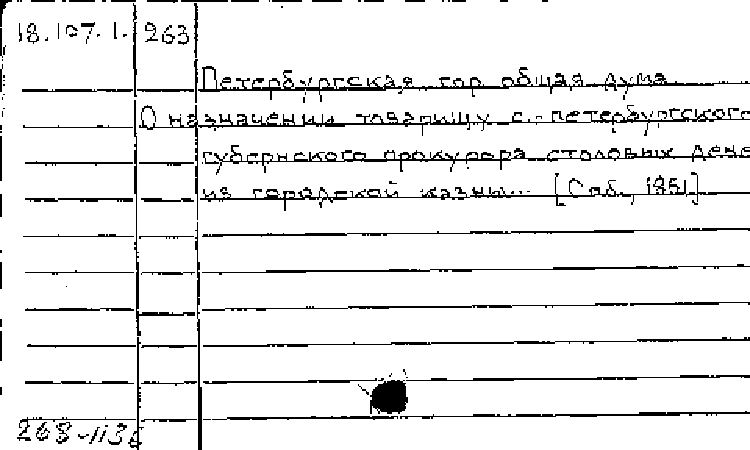 18.107.1. 263
Петербургская гор. общая дума
О назначении товарищу с.-петербургского
губернского прокурора столовых дене
из городской казны... [Спб., 1851]
268-113